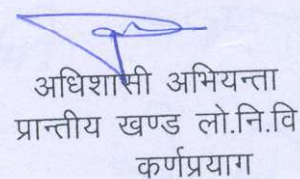 अधिशासी अभियन्ता
प्रान्तीय खण्ड लो.नि.वि
कर्णप्रयाग